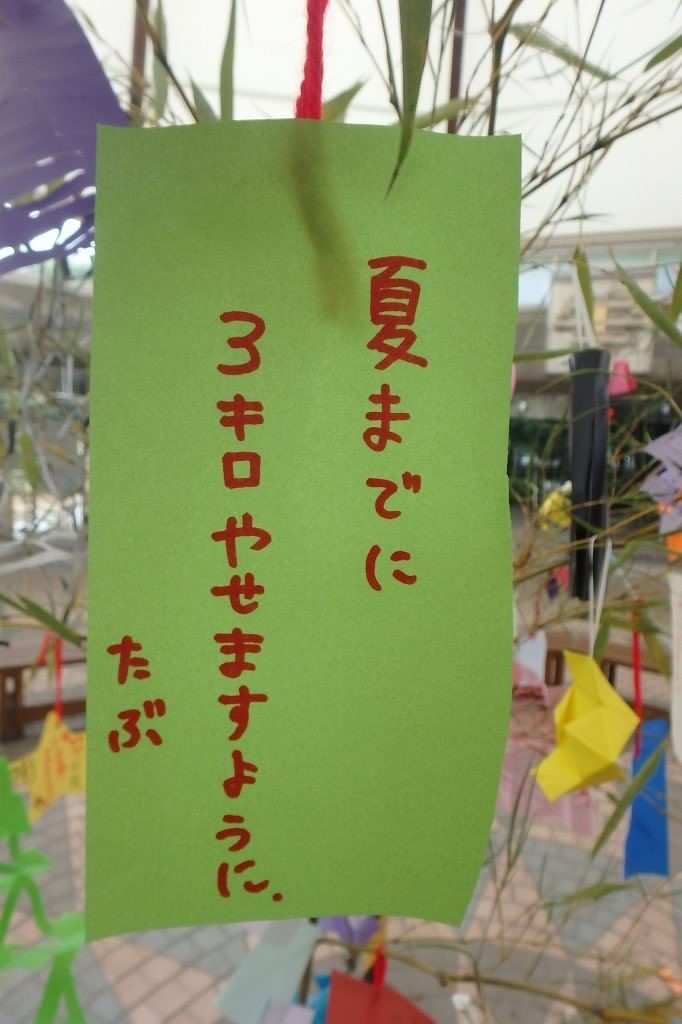 夏までに
3キロやせますように.
たぶ